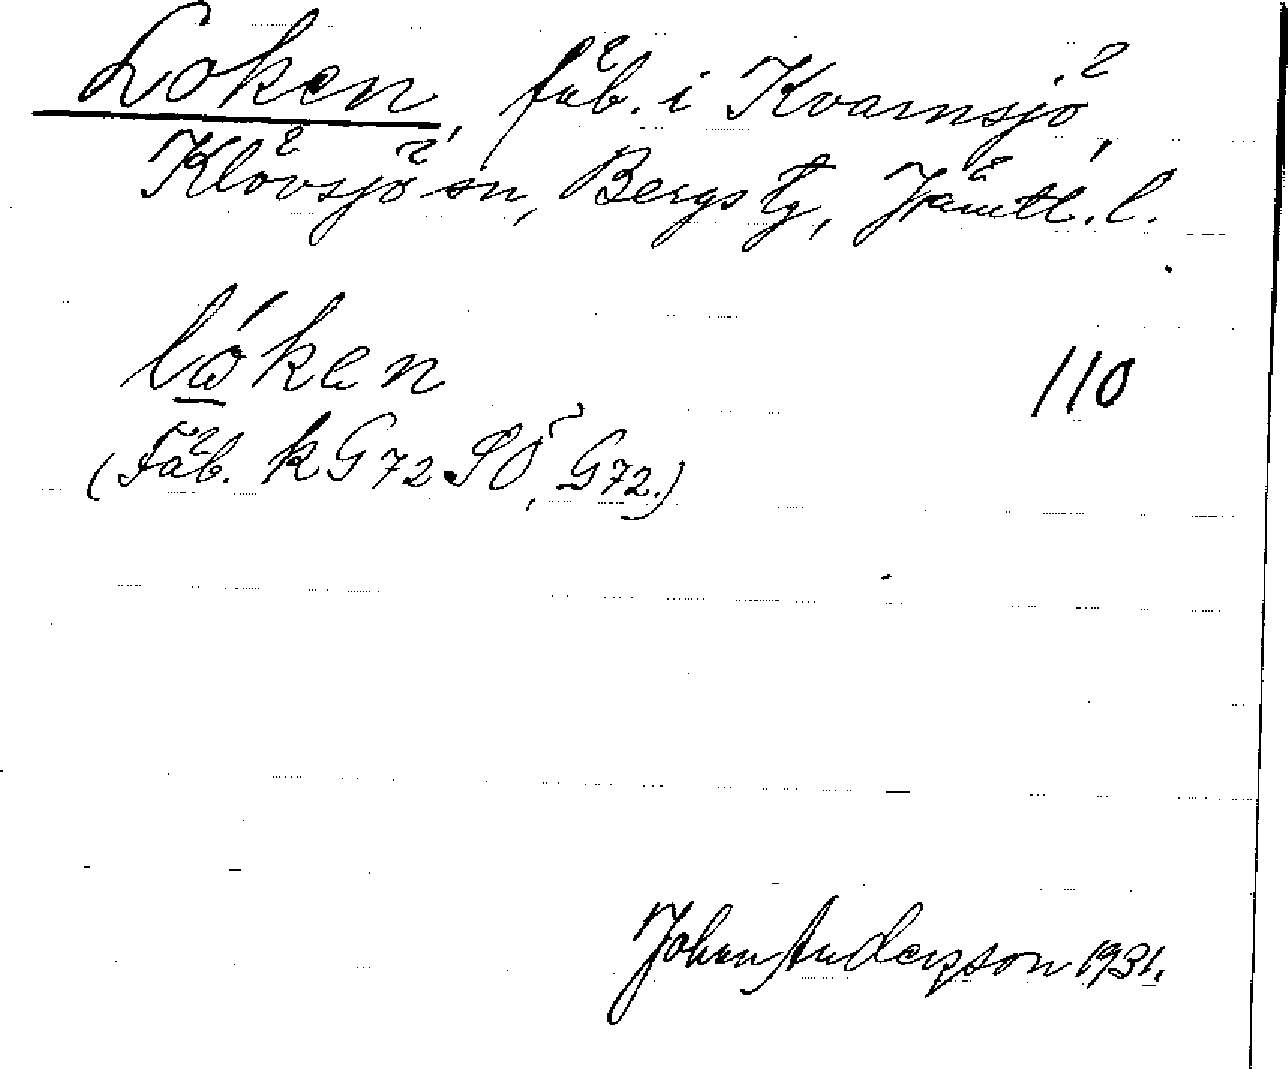 Loken, fäb. i Kvarnsjö,
Klövsjö sn, Bergs tg, Jämtl. l.
lo̲ken 110
(Fäb. k G72 SÖ, G72.)
Johan Andersson 1931.